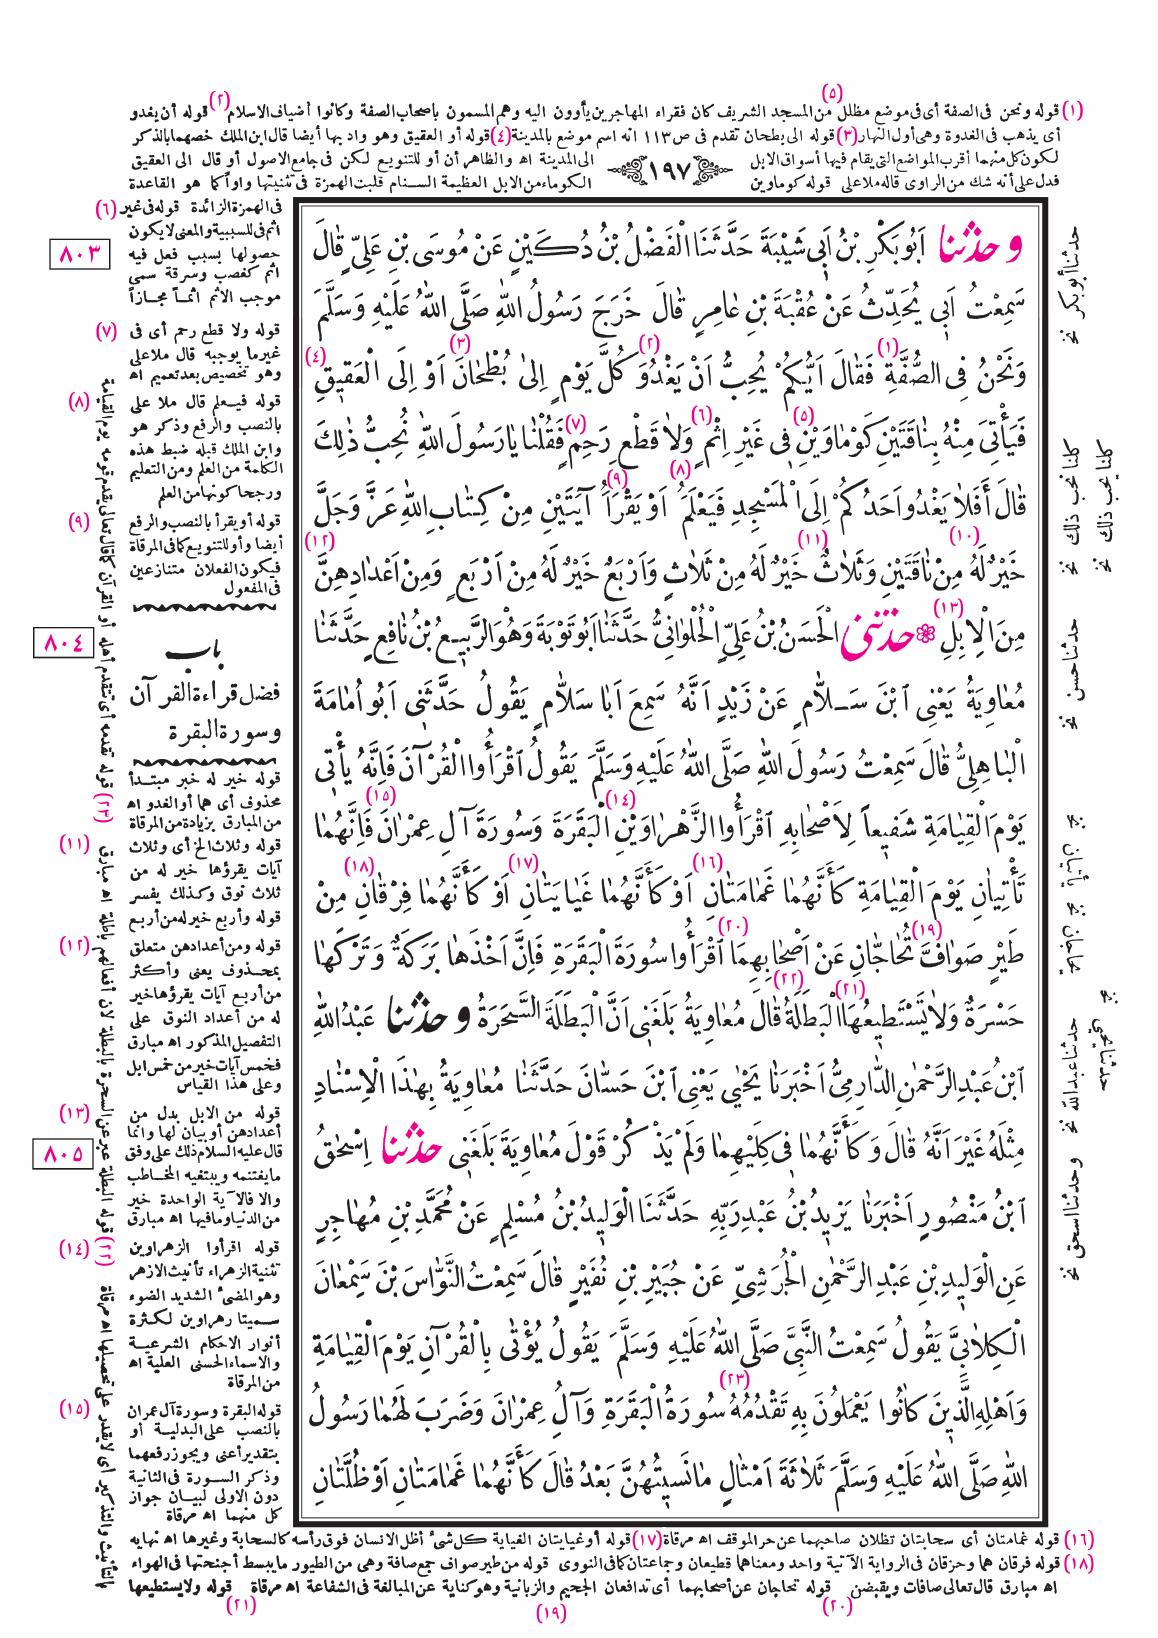 (٥)
(١) قوله ونحن فى الصفة أى فى موضع مظلل من المسجد الشريف كان فقراء المهاجرين يأوون اليه وهم المسمون باصحاب الصفة وكانوا أضياف الاسلام (٢) قوله أن يغدو
أى يذهب فى الغدوة وهى أول النهار (٣) قوله الى بطحان تقدم فى ص ١١٣ انه اسم موضع بالمدينة (٤) قوله أو العقيق وهو واد بها أيضا قال ابن الملك خصهما بالذكر
لكون كل منهما أقرب المواضع التى يقام فيها أسواق الابل ١٩٧ الى المدينة اه والظاهر أن أو للتنويع لكن فى جامع الاصول أو قال الى العقيق
فدل على أنه شك من الراوى قاله ملا على قوله كوماوين الكوماء من الابل العظيمة السنام قلبت الهمزة فى تثنيتها واواً كما هو القاعدة
وحدثنا اَبُو بَكْرِ بْنُ اَبِى شَيْبَةَ حَدَّثَنَا الْفَضْلُ بْنُ دُكَيْنٍ عَنْ مُوسَى بْنِ عَلِىٍّ قٰالَ
سَمِعْتُ اَبِى يُحَدِّثُ عَنْ عُقْبَةَ بْنِ عٰامِرٍ قٰالَ خَرَجَ رَسُولُ اللهِ صَلَّى اللهُ عَلَيْهِ وَسَلَّمَ
وَنَحْنُ فِى الصُّفَّةِ (١) فَقٰالَ اَيُّكُمْ يُحِبُّ اَنْ يَغْدُوَ (٢) كُلَّ يَوْمٍ اِلىٰ بُطْحٰانَ (٣) اَوْ اِلَى الْعَقيقِ (٤)
فَيَأْتِىَ مِنْهُ بِنٰاقَتَيْنِ كَوْمٰاوَيْنِ (٥) فى غَيْرِ اِثْمٍ (٦) وَلاٰ قَطْعِ رَحِمٍ (٧) فَقُلْنٰا يٰا رَسُولَ اللهِ نُحِبُّ ذٰلِكَ
قٰالَ أَفَلاٰ يَغْدُو اَحَدُكُمْ اِلَى الْمَسْجِدِ فَيَعْلَمُ (٨) اَوْ يَقْرَأُ (٩) آيَتَيْنِ مِنْ كِتٰابِ اللهِ عَزَّ وَجَلَّ
خَيْرٌ لَهُ (١٠) مِنْ نٰاقَتَيْنِ وَثَلاٰثٌ (١١) خَيْرٌ لَهُ مِنْ ثَلاٰثٍ وَاَرْبَعٌ خَيْرٌ لَهُ مِنْ اَرْبَعٍ وَمِنْ اَعْدٰادِهِنَّ (١٢)
مِنَ الْاِبِلِ (١٣) حدثنى الْحَسَنُ بْنُ عَلِىٍّ الْحُلْوٰانِىُّ حَدَّثَنٰا اَبُو تَوْبَةَ وَهُوَ الرَّبيعُ بْنُ نٰافِعٍ حَدَّثَنٰا
مُعٰاوِيَةُ يَعْنِى ابْنَ سَلاّٰمٍ عَنْ زَيْدٍ اَنَّهُ سَمِعَ اَبٰا سَلاّٰمٍ يَقُولُ حَدَّثَنى اَبُو اُمٰامَةَ
الْبٰاهِلِىُّ قٰالَ سَمِعْتُ رَسُولَ اللهِ صَلَّى اللهُ عَلَيْهِ وَسَلَّمَ يَقُولُ اقْرَأُوا الْقُرْآنَ فَاِنَّهُ يَأْتى
يَوْمَ الْقِيٰامَةِ شَفيعاً لِاَصْحٰابِهِ اقْرَأُوا الزَّهْرٰاوَيْنِ (١٤) الْبَقَرَةَ وَسُورَةَ آلِ عِمْرٰانَ (١٥) فَاِنَّهُمٰا
تَأْتِيٰانِ يَوْمَ الْقِيٰامَةِ كَأَنَّهُمٰا غَمٰامَتٰانِ (١٦) اَوْ كَأَنَّهُمٰا غَيٰايَتٰانِ (١٧) اَوْ كَأَنَّهُمٰا فِرْقٰانِ (١٨) مِنْ
طَيْرٍ صَوٰافَّ (١٩) تُحٰاجّٰانِ عَنْ اَصْحٰابِهِمٰا (٢٠) اقْرَأُوا سُورَةَ الْبَقَرَةِ فَاِنَّ اَخْذَهٰا بَرَكَةٌ وَتَرْكَهٰا
حَسْرَةٌ وَلاٰ يَسْتَطيعُهَا (٢١) الْبَطَلَةُ (٢٢) قٰالَ مُعٰاوِيَةُ بَلَغَنى اَنَّ الْبَطَلَةَ السَّحَرَةُ وحدثنا عَبْدُ اللهِ
ابْنُ عَبْدِ الرَّحْمٰنِ الدّٰارِمِىُّ اَخْبَرَنٰا يَحْيٰى يَعْنِى ابْنَ حَسّٰانَ حَدَّثَنٰا مُعٰاوِيَةُ بِهٰذَا الْاِسْنٰادِ
مِثْلَهُ غَيْرَ اَنَّهُ قٰالَ وَكَأَنَّهُمٰا فى كِلَيْهِمٰا وَلَمْ يَذْكُرْ قَوْلَ مُعٰاوِيَةَ بَلَغَنى حدثنا اِسْحٰقُ
ابْنُ مَنْصُورٍ اَخْبَرَنٰا يَزيدُ بْنُ عَبْدِ رَبِّهِ حَدَّثَنَا الْوَليدُ بْنُ مُسْلِمٍ عَنْ مُحَمَّدِ بْنِ مُهٰاجِرٍ
عَنِ الْوَليدِ بْنِ عَبْدِ الرَّحْمٰنِ الْجُرَشِىِّ عَنْ جُبَيْرِ بْنِ نُفَيْرٍ قٰالَ سَمِعْتُ النَّوّٰاسَ بْنَ سَمْعٰانَ
الْكِلاٰبِىَّ يَقُولُ سَمِعْتُ النَّبِىَّ صَلَّى اللهُ عَلَيْهِ وَسَلَّمَ يَقُولُ يُؤْتٰى بِالْقُرْآنِ يَوْمَ الْقِيٰامَةِ
وَاَهْلِهِ الَّذينَ كٰانُوا يَعْمَلُونَ بِهِ تَقْدُمُهُ (٢٣) سُورَةُ الْبَقَرَةِ وَآلُ عِمْرٰانَ وَضَرَبَ لَهُمٰا رَسُولُ
اللهِ صَلَّى اللهُ عَلَيْهِ وَسَلَّمَ ثَلاٰثَةَ اَمْثٰالٍ مٰا نَسيتُهُنَّ بَعْدُ قٰالَ كَأَنَّهُمٰا غَمٰامَتٰانِ اَوْ ظُلَّتٰانِ
حدثنا أبو بكر نخ
كلنا نحب ذلك نخ
كلنا يحب ذلك نخ
حدثنا حسن نخ
يأتيان نخ
يحاجان نخ
حدثنا عبدالله نخ
حدثنا يحيى نخ
وحدثنا اسحق نخ
فى الهمزة الزائدة قوله فى غير (٦)
اثم فى للسببية والمعنى لا يكون
٨٠٣
حصولها بسبب فعل فيه
اثم كغصب وسرقة سمى
موجب الاثم اثماً مجازاً
(٧) قوله ولا قطع رحم أى فى
غير ما يوجبه قال ملا على
وهو تخصيص بعد تعميم اه
(٨) قوله فيعلم قال ملا على
بالنصب والرفع وذكر هو
وابن الملك قبله ضبط هذه
الكلمة من العلم ومن التعليم
ورجحا كونها من العلم
(٩) قوله أو يقرأ بالنصب والرفع
أيضا وأو للتنويع كما فى المرقاة
فيكون الفعلان متنازعين
فى المفعول
٨٠٤
باب
فضل قراءة القرآن
وسورة البقرة
قوله خير له خبر مبتدأ
محذوف أى هما أو الغدو اه
من المبارق بزيادة من المرقاة
(١١) قوله وثلاث الخ أى وثلاث
آيات يقرؤها خير له من
ثلاث نوق وكذلك يفسر
قوله وأربع خير له من أربع
(١٢) قوله ومن أعدادهن متعلق
بمحذوف يعنى وأكثر
من أربع آيات يقرؤها خير
له من أعداد النوق على
التفصيل المذكور اه مبارق
فخمس آيات خير من خمس ابل
وعلى هذا القياس
(١٣) قوله من الابل بدل من
أعدادهن أو بيان لها وانما
٨٠٥
قال عليه السلام ذلك على وفق
ما يفتنمه ويبتغيه المخاطب
والا فالآية الواحدة خير
من الدنيا وما فيها اه مبارق
(١٤) قوله اقرأوا الزهراوين
تثنية الزهراء تأنيث الازهر
وهو المضئ الشديد الضوء
سميتا زهراوين لكثرة
أنوار الاحكام الشرعية
والاسماء الحسنى العلية اه
من المرقاة
(١٥) قوله البقرة وسورة آل عمران
بالنصب على البدلية أو
بتقدير أعنى ويجوز رفعهما
وذكر السورة فى الثانية
دون الاولى لبيان جواز
كل منهما اه مرقاة
(٢٣) قوله تقدمه أى تتقدم أهله أو القرآن كما قال تعالى يقدم قومه يوم القيامة
(٢٢) قوله البطلة عبر عن السحرة بالبطلة لان أفعالهم باطلة اه مبارق
بالتأنيث والتذكير أى لا يقدر على تحصيلها اه مرقاة
(١٦) قوله غمامتان أى سحابتان تظلان صاحبهما عن حر الموقف اه مرقاة (١٧) قوله أو غيايتان الغياية كل شئ أظل الانسان فوق رأسه كالسحابة وغيرها اه نهايه
(١٨) قوله فرقان هما وحزقان فى الرواية الآتية واحد ومعناهما قطيعان وجماعتان كما فى النووى قوله من طير صواف جمع صافة وهى من الطيور ما يبسط أجنحتها فى الهواء
اه مبارق قال تعالى صافات ويقبضن قوله تحاجان عن أصحابهما أى تدافعان الجحيم والزبانية وهو كناية عن المبالغة فى الشفاعة اه مرقاة قوله ولا يستطيعها
(٢٠) (١٩) (٢١)